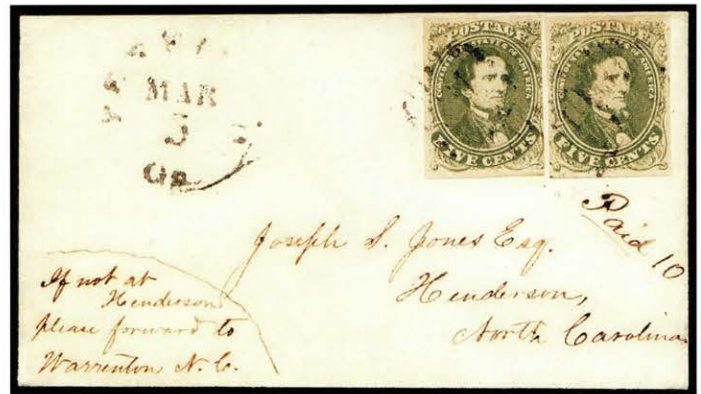 POSTAGE
CONFEDERATE STATES OF AMERICA
FIVE CENTS
POSTAGE
CONFEDERATE STATES OF AMERICA
FIVE CENTS
MAR
5
Ga.
Paid 10
Joseph S. Jones Esq.
Henderson,
North Carolina
If not at
Henderson
please forward to
Warrenton N. C.